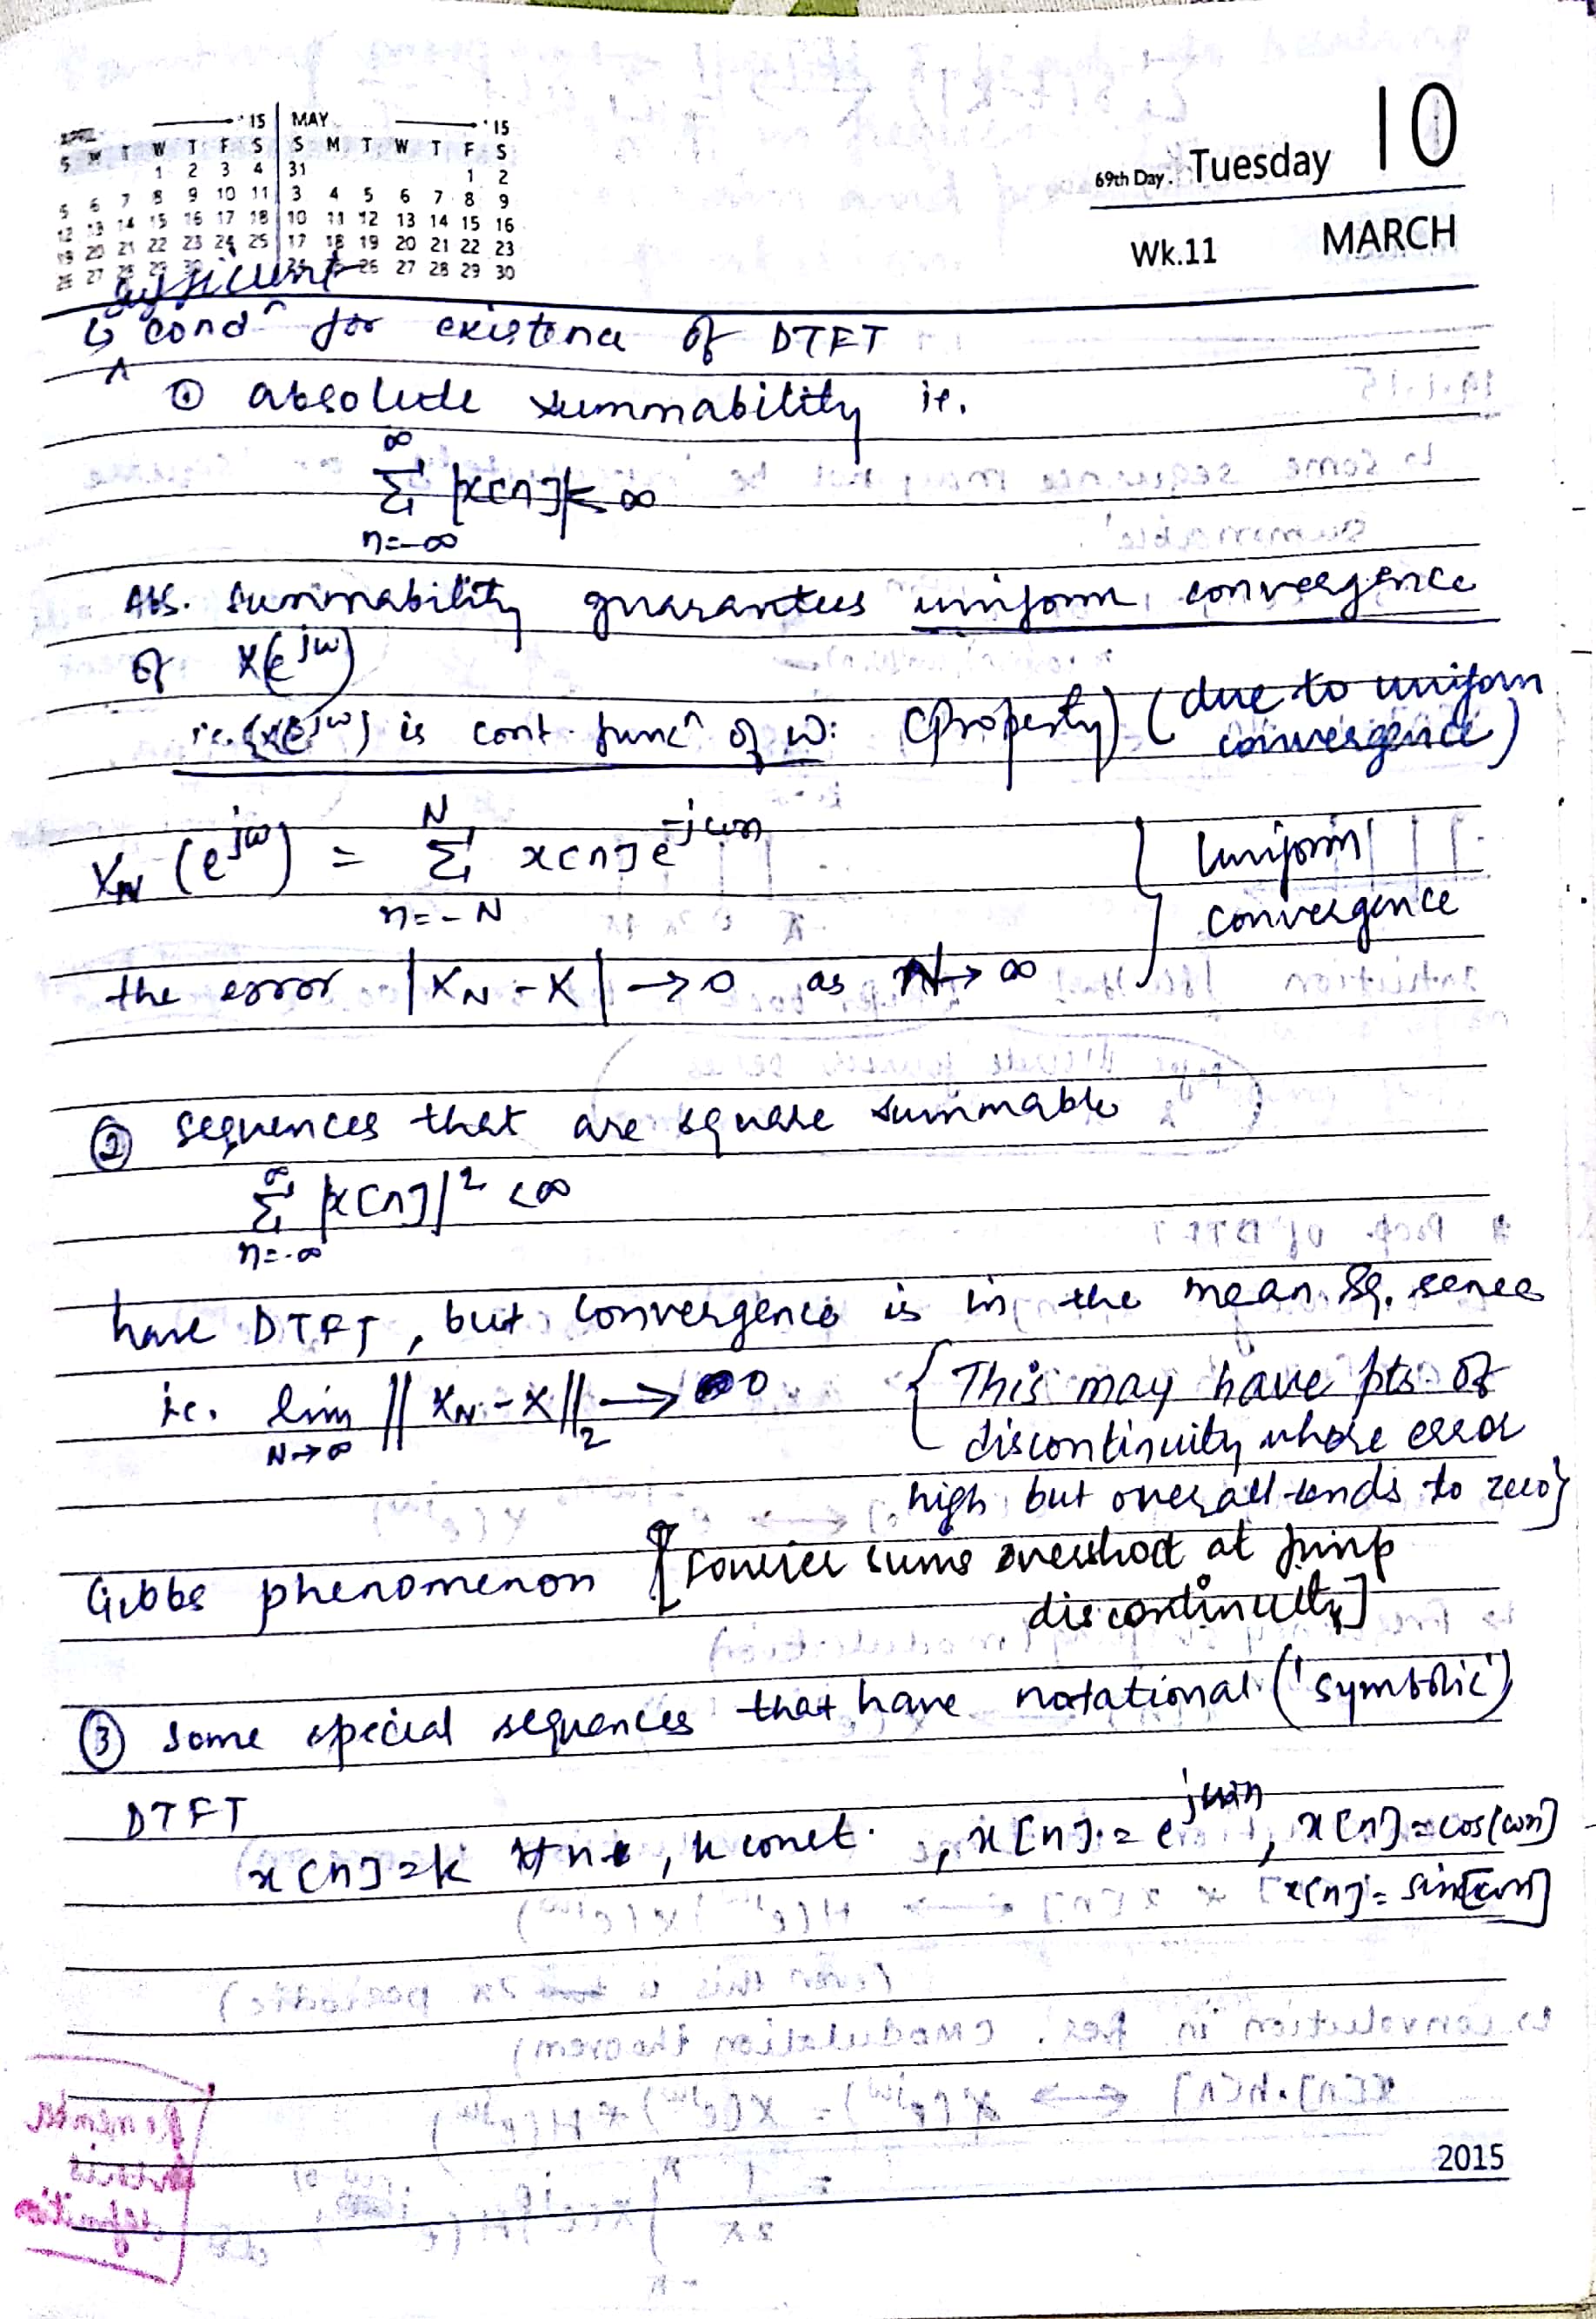 APRIL → '15 MAY → '15
S M T W T F S S M T W T F S
1 2 3 4 31 1 2
5 6 7 8 9 10 11 3 4 5 6 7 8 9
12 13 14 15 16 17 18 10 11 12 13 14 15 16
19 20 21 22 23 24 25 17 18 19 20 21 22 23
26 27 28 29 30 24 25 26 27 28 29 30
69th Day. Tuesday 10
Wk.11 MARCH
sufficient
↳ condⁿ for existence of DTFT
① absolute summability ie.
∞
Σ |x[n]| < ∞
n=-∞
Abs. summability guarantees uniform convergence
of X(e^{jω})
i.e. {X(e^{jω}) is cont. funcⁿ of ω: (Property) (due to uniform
convergence)
X_N (e^{jω}) = Σ_{n=-N}^{N} x[n] e^{-jωn} } Uniform
convergence
the error |X_N - X| → 0 as N → ∞
② sequences that are square summable
Σ_{n=-∞}^{∞} |x[n]|² < ∞
have DTFT, but convergence is in the mean sq. sense
ie. lim_{N→∞} ||X_N - X||₂ → 0 { This may have pts. of
discontinuity where error
high but overall tends to zero}
Gibbs phenomenon [Fourier sums overshoot at jump
discontinuity]
③ some special sequences that have notational ('symbolic')
DTFT
x[n]=k ∀ n, k const. , x[n] = e^{jωn}, x[n] = cos[ωn]
x[n] = sin[ωn]
2015